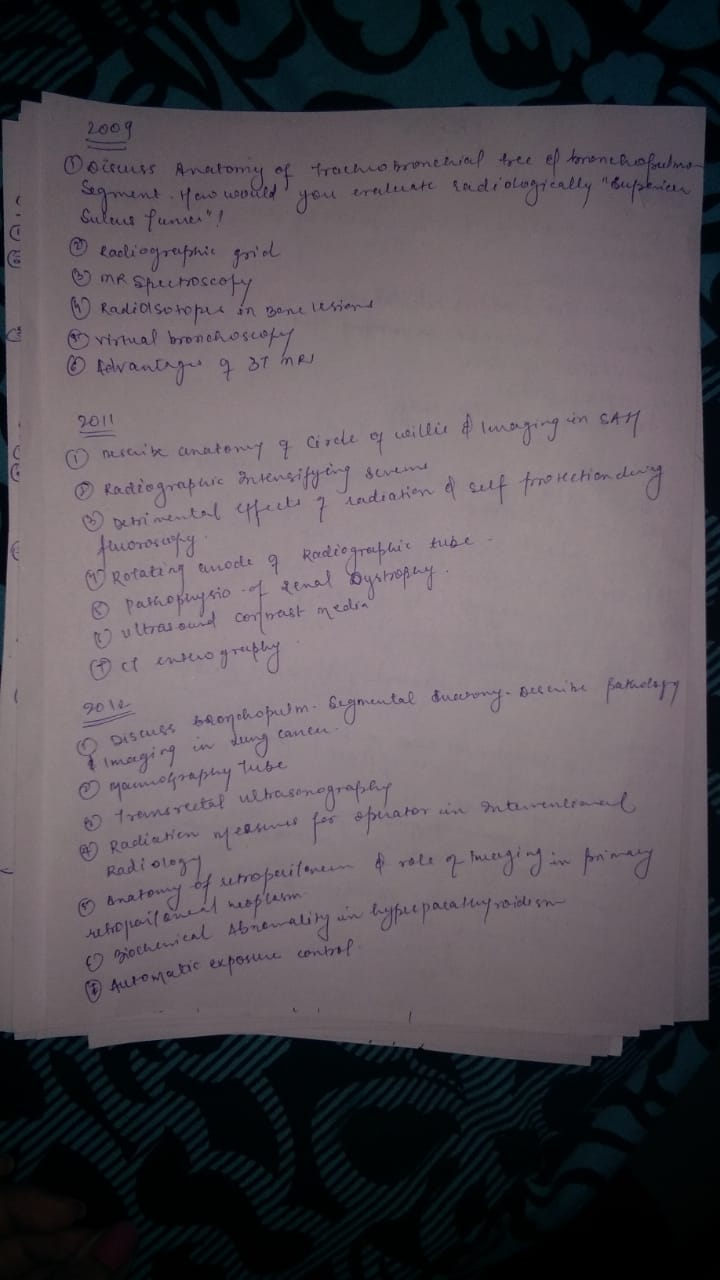 2009
① Discuss Anatomy of Tracheobronchial tree & bronchopulmo
Segment. How would you evaluate radiologically "Superior
Sulcus Tumor"!
② Radiographic grid
③ MR Spectroscopy
④ Radioisotopes in Bone lesions
⑤ virtual bronchoscopy
⑥ Advantages of 3T MRI
2011
① Describe anatomy of Circle of willis & Imaging in SAH
② Radiographic Intensifying screens
③ Detrimental effects of radiation & self protection during
fluoroscopy.
④ Rotating anode of Radiographic tube.
⑤ Pathophysio. of Renal Dystrophy.
⑥ ultrasound contrast media
⑦ CT enterography
2012
① Discuss bronchopulm. Segmental Anatomy. Describe pathology
& Imaging in lung cancer.
② Mammography Tube
③ Transrectal ultrasonography
④ Radiation measures for operator in Interventional
Radiology
⑤ Anatomy of retroperitoneum & role of Imaging in primary
retroperitoneal neoplasm.
⑥ Biochemical Abnormality in hyperparathyroidism
⑦ Automatic exposure control.